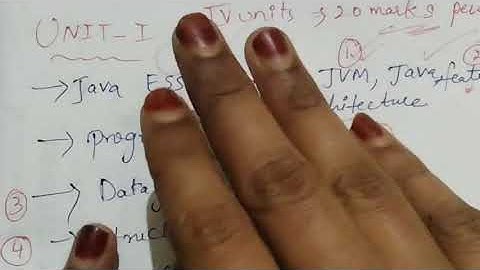 UNIT-I IV units → 20 marks
①
→ Java ESS JVM, Java, feat
hitecture
→ prog
③ → Data
④ →